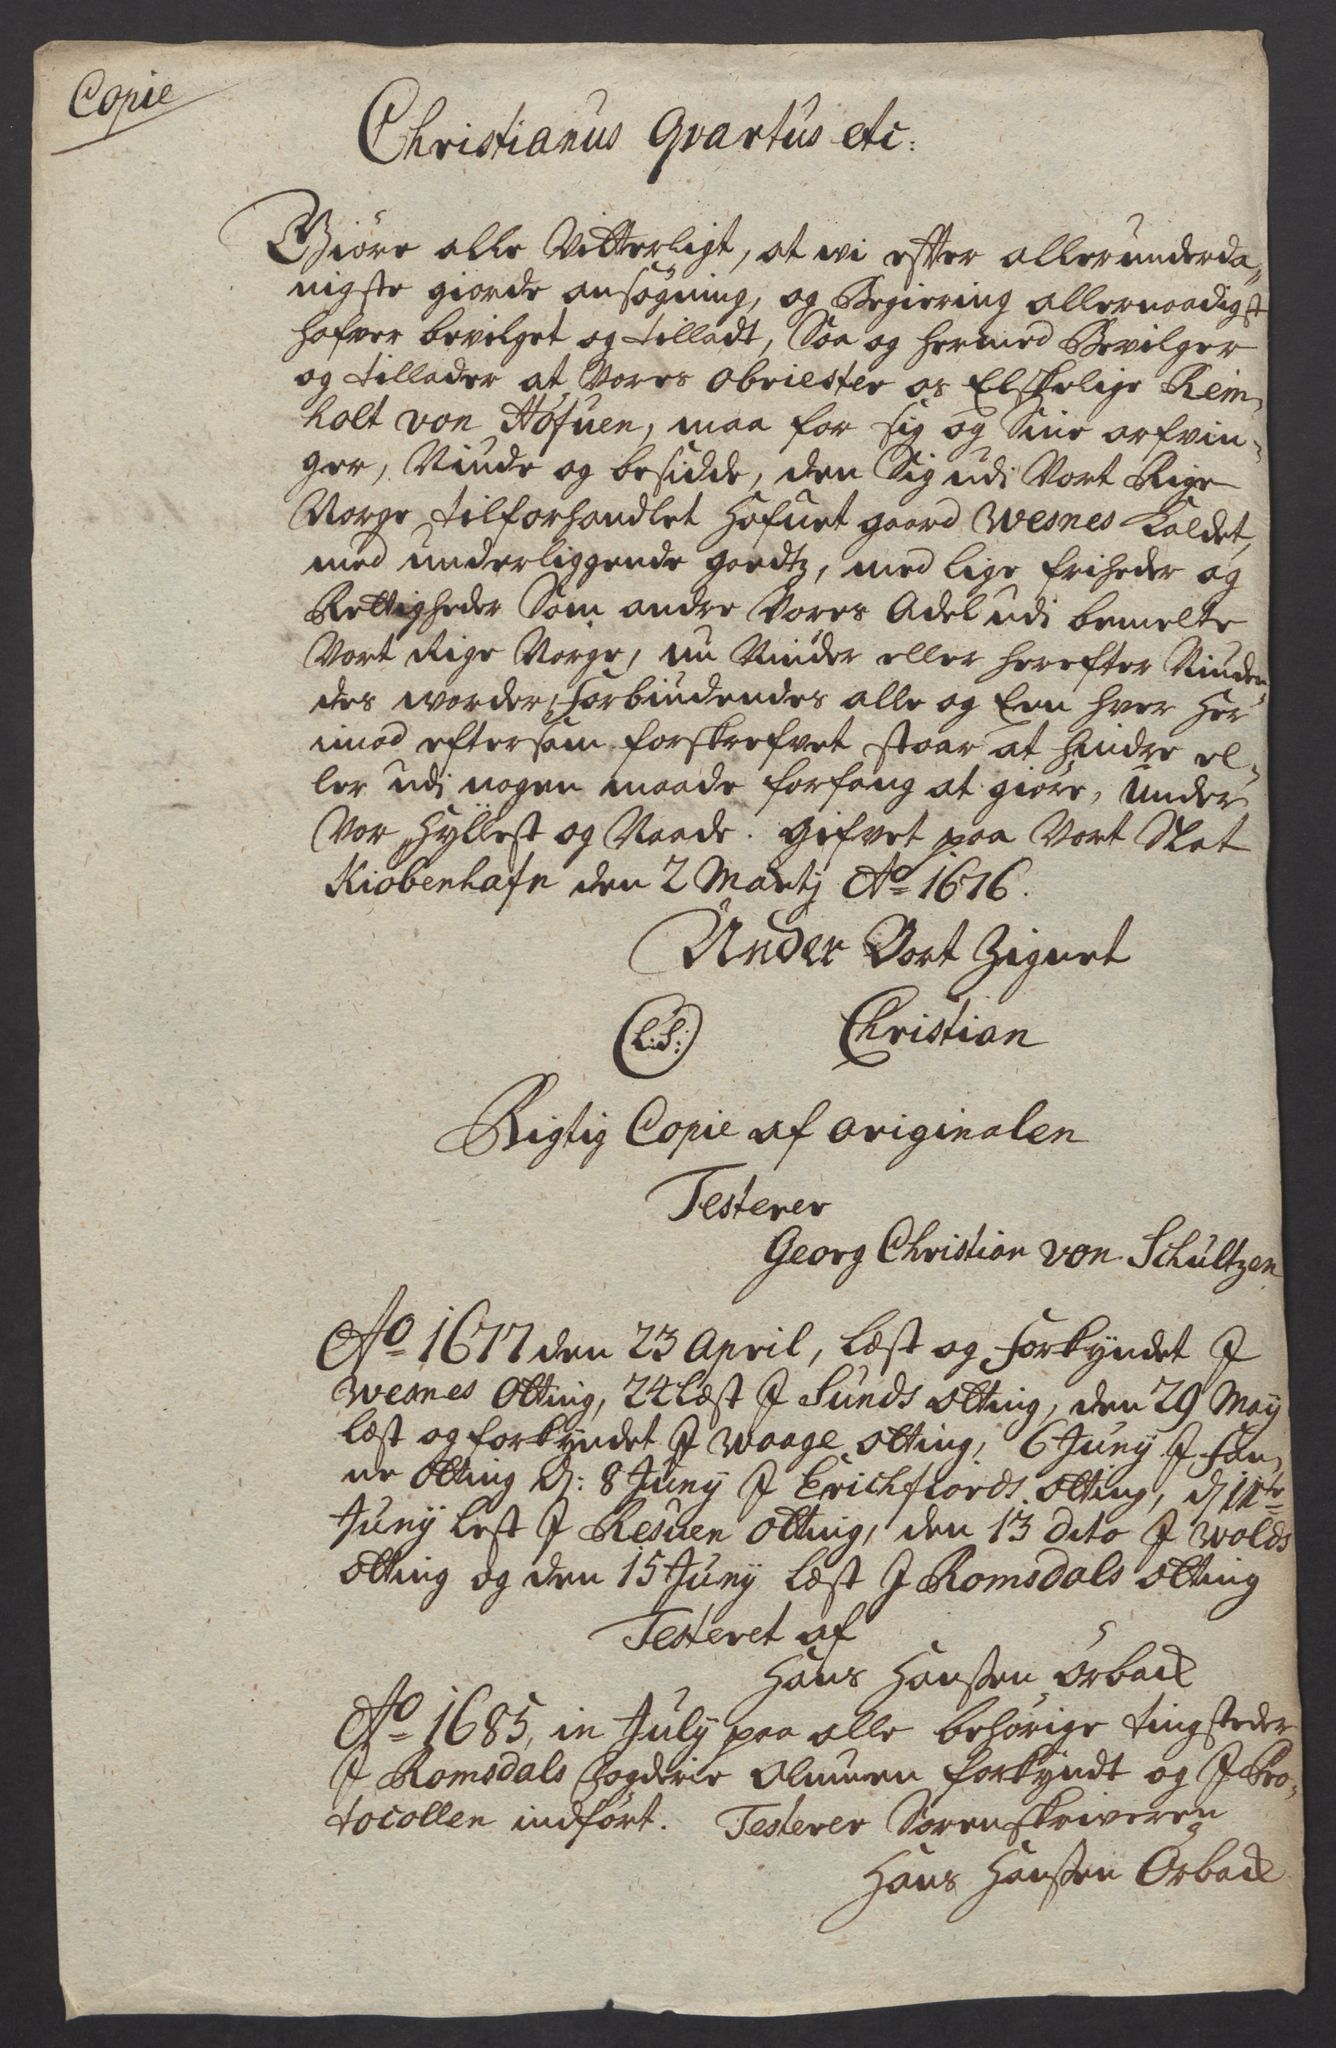 Copie
Christianus Qvartus etc:
Giöre alle Vitterligt, at wi efter allerunderda„
nigste giorde ansøgning, og Begiering allernaadigst
hafver bevilget og tilladt, Saa og hermed Bevilger
og tillader at Vores Obriester os Elskelige Rein„
holt von Höfuen, maa for sig og Sine arfvin„
ger, Niude og besidde, den Sig udi Vort Rige
Norge tilforhandlet Hafuet gaard Wesnes Kaldet,
med underliggende goedtz, med lige friheder og
Rettigheder Som andre Vores Adel udi bemelte
Vort Rige Norge, nu Niuder eller herefter Niuden„
des worder, Forbiudendes alle og Een hver Her
imod eftersom forskrefvet staar at hindre el„
ler udi nogen maade forfang at giöre, Under
Vor Hyllest og Naade. Gifvet paa Vort Slot
Kiöbenhafn den 2 Martj Ao 1676.
Under Vort Zignet
(L:S:) Christian
Rigtig Copie af originalen
Testerer
Georg Christian von Schultzen
Ao 1677 den 23 April, læst og Forkyndet J
Wesnes Otting, 24 læst J Sunds Otting, den 29 Maÿ
læst og forkyndet J Waage otting, 6 Junÿ J Fan„
ne Otting d: 8 Junÿ J Erichfiords Otting, d 11te
Junÿ lest J Resuen Otting, den 13 Dito J Wolds
otting og den 15 Junÿ læst J Romsdals otting
Testeret af
Hans Hanssen Örbach
Ao 1685, in Julÿ paa alle behörige tingsteder
J Romsdals Fogderie Almuen forkÿndt og J Pro„
tocollen indfört. Testerer Sorenskriveren
Hans Hanssen Örbach